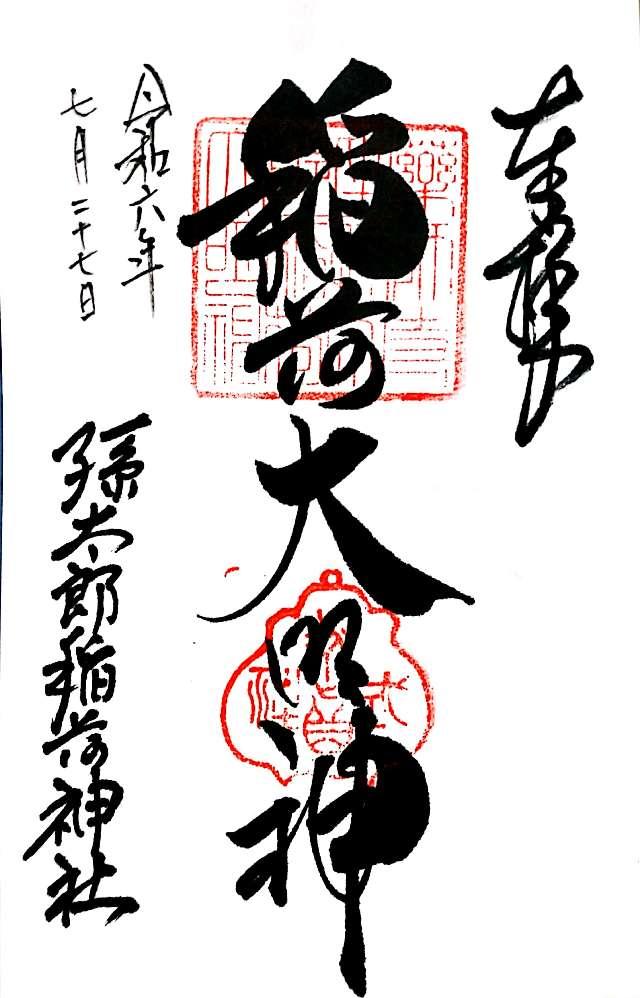 奉拝
稲荷大明神
令和六年
七月二十七日
孫太郎稲荷神社